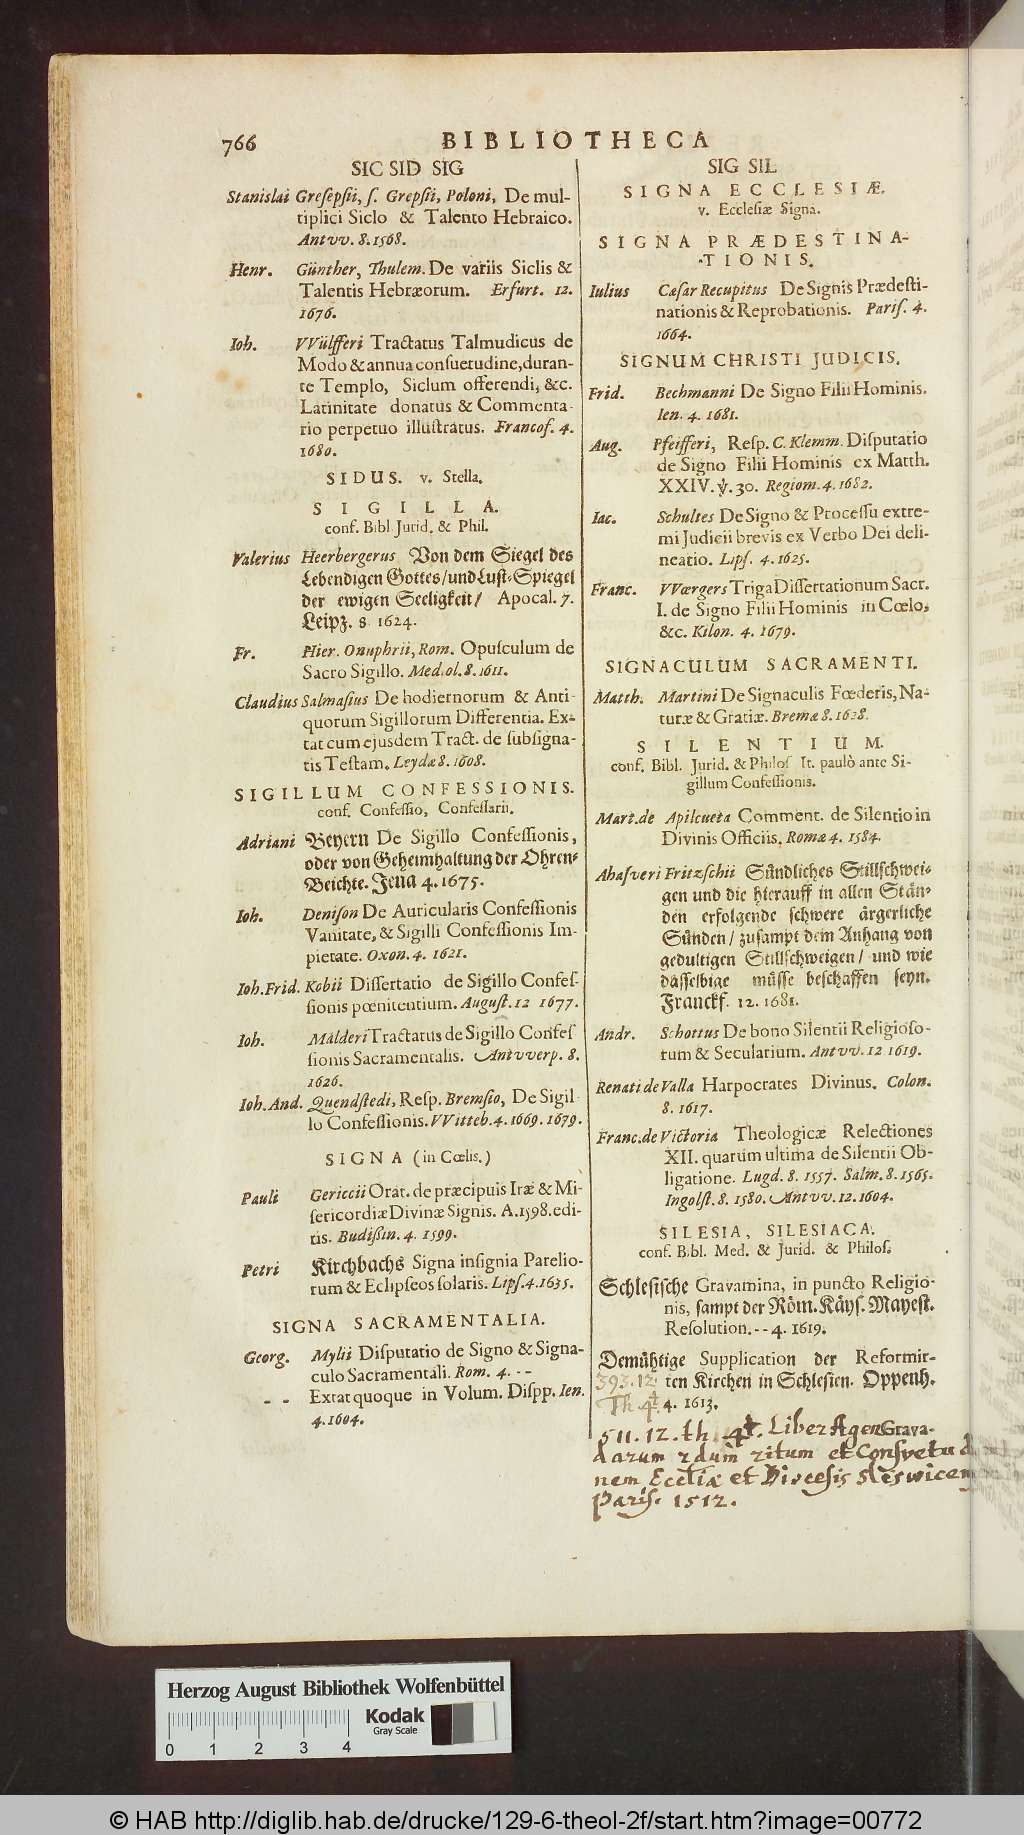 766 BIBLIOTHECA
SIC SID SIG
Stanislai Gresepsii, s. Grepsii, Poloni, De mul-
tiplici Siclo & Talento Hebraico.
Antvv. 8. 1568.
Henr. Günther, Thulem. De variis Siclis &
Talentis Hebræorum. Erfurt. 12.
1676.
Ioh. VVülfferi Tractatus Talmudicus de
Modo & annua consuetudine, duran-
te Templo, Siclum offerendi, &c.
Latinitate donatus & Commenta-
rio perpetuo illustratus. Francof. 4.
1680.
SIDUS. v. Stella.
SIGILLA.
conf. Bibl Jurid. & Phil.
Valerius Heerbergerus Von dem Siegel des
Lebendigen Gottes/und Lust-Spiegel
der ewigen Seeligkeit/ Apocal. 7.
Leipz. 8 1624.
Fr. Hier. Onuphrii, Rom. Opusculum de
Sacro Sigillo. Mediol. 8. 1611.
Claudius Salmasius De hodiernorum & Anti-
quorum Sigillorum Differentia. Ex-
tat cum ejusdem Tract. de subsigna-
tis Testam. Leydæ 8. 1608.
SIGILLUM CONFESSIONIS.
conf. Confessio, Confessarii.
Adriani Beyern De Sigillo Confessionis,
oder von Geheimhaltung der Ohren-
Beichte. Jena 4. 1675.
Ioh. Denison De Auricularis Confessionis
Vanitate, & Sigilli Confessionis Im-
pietate. Oxon. 4. 1621.
Ioh. Frid. Kobii Dissertatio de Sigillo Confes-
sionis pœnitentium. August. 12 1677.
Ioh. Malderi Tractatus de Sigillo Confes
sionis Sacramentalis. Antvverp. 8.
1626.
Ioh. And. Quendstedi, Resp. Bremsio, De Sigil
lo Confessionis. VVitteb. 4. 1669. 1679.
SIGNA (in Cœlis.)
Pauli Gericcii Orat. de præcipuis Iræ & Mi-
sericordiæ Divinæ Signis. A. 1598. edi-
tis. Budissin. 4. 1599.
Petri Kirchbachs Signa insignia Parelio-
rum & Eclipseos solaris. Lips. 4. 1635.
SIGNA SACRAMENTALIA.
Georg. Mylii Disputatio de Signo & Signa-
culo Sacramentali. Rom. 4. - -
- - Extat quoque in Volum. Dispp. Ien.
4. 1604.
SIG SIL
SIGNA ECCLESIÆ.
v. Ecclesiæ Signa.
SIGNA PRÆDESTINA-
TIONIS.
Iulius Cæsar Recupitus De Signis Prædesti-
nationis & Reprobationis. Paris. 4.
1664.
SIGNUM CHRISTI JUDICIS.
Frid. Bechmanni De Signo Filii Hominis.
Ien. 4. 1681.
Aug. Pfeifferi, Resp. C. Klemm. Disputatio
de Signo Filii Hominis ex Matth.
XXIV. v. 30. Regiom. 4. 1682.
Iac. Schultes De Signo & Processu extre-
mi Judicii brevis ex Verbo Dei deli-
neatio. Lips. 4. 1625.
Franc. VVœrgers Triga Dissertationum Sacr.
I. de Signo Filii Hominis in Cœlo,
&c. Kilon. 4. 1679.
SIGNACULUM SACRAMENTI.
Matth. Martini De Signaculis Fœderis, Na-
turæ & Gratiæ. Bremæ 8. 1628.
SILENTIUM.
conf. Bibl. Jurid. & Philos It. paulò ante Si-
gillum Confessionis.
Mart. de Apilcueta Comment. de Silentio in
Divinis Officiis. Romæ 4. 1584.
Ahasveri Fritzschii Sündliches Stillschwei-
gen und die hierauff in allen Stän-
den erfolgende schwere ärgerliche
Sünden/ zusampt dem Anhang von
gedultigen Stillschweigen/ und wie
dasselbige müsse beschaffen seyn.
Franckf. 12. 1681.
Andr. Schottus De bono Silentii Religioso-
rum & Secularium. Antvv. 12 1619.
Renati de Valla Harpocrates Divinus. Colon.
8. 1617.
Franc. de Victoria Theologicæ Relectiones
XII. quarum ultima de Silentii Ob-
ligatione. Lugd. 8. 1557. Salm. 8. 1565.
Ingolst. 8. 1580. Antvv. 12. 1604.
SILESIA, SILESIACA.
conf. Bibl. Med. & Jurid. & Philos.
Schlesische Gravamina, in puncto Religio-
nis, sampt der Röm. Käys. Mayest.
Resolution. - - 4. 1619.
Demühtige Supplication der Reformir-
393. 12 ten Kirchen in Schlesien. Oppenh.
Th. 4t. 4. 1613.
Grava-
511. 12. th. 4t. Liber Agen
darum rdum ritum et Consvetudi
nem Eccliæ et Diocesis Sleswicen
Paris. 1512.
Herzog August Bibliothek Wolfenbüttel
Kodak
Gray Scale
0 1 2 3 4
© HAB http://diglib.hab.de/drucke/129-6-theol-2f/start.htm?image=00772